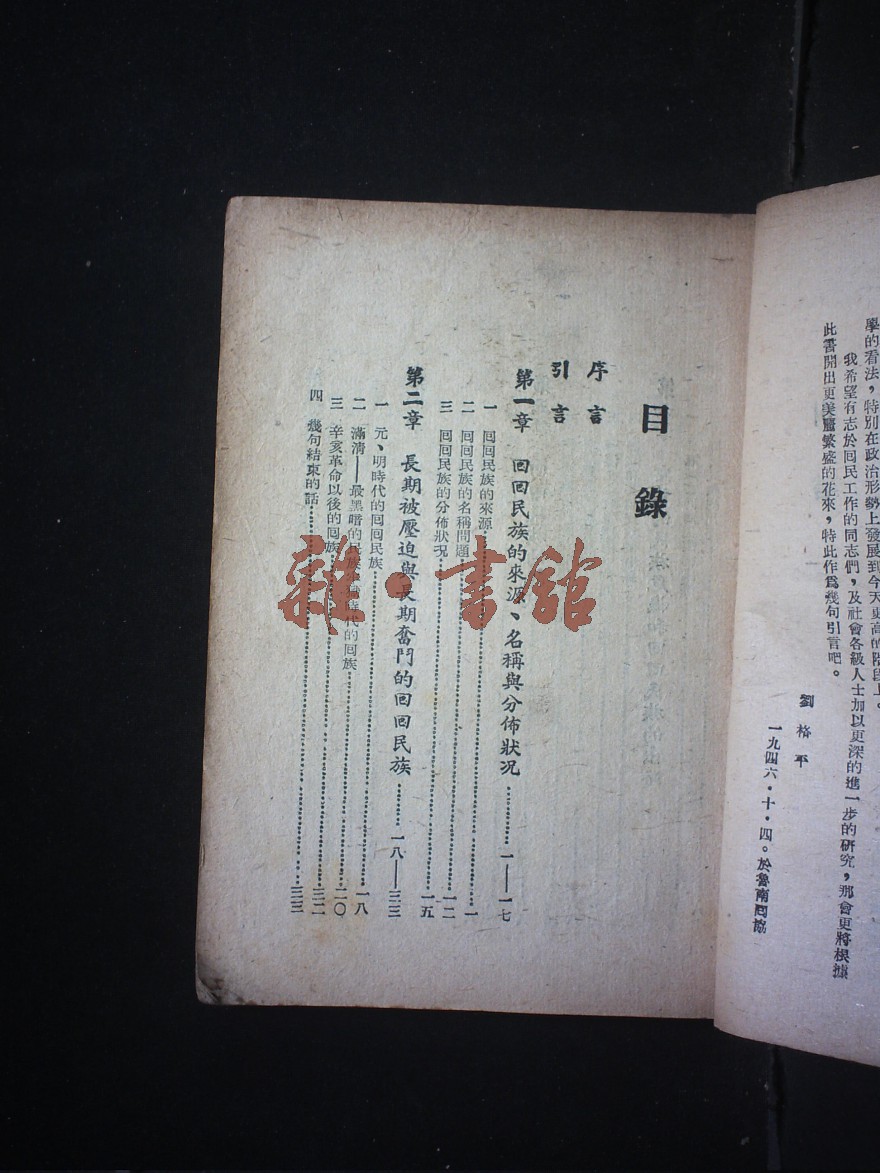 學的看法，特別在政治形勢上發展到今天更高的階段上。
我希望有志於回民工作的同志們，及社會各級人士加以更深的進一步的研究，那會更將根據
此書開出更美麗繁盛的花來，特此作爲幾句引言吧。
劉格平
一九四六·十·四。於魯南回協
目錄
序言
引言
第一章 回回民族的來源、名稱與分佈狀况………一——一七
一 回回民族的來源………一
二 回回民族的名稱問題………一二
三 回回民族的分佈狀况………一五
第二章 長期被壓迫與長期奮鬥的回回民族………一八——三三
一 元、明時代的回回民族………一八
二 滿清——最黑暗的民族 時代的回族………二〇
三 辛亥革命以後的回族………三二
四 幾句結束的話………三三
雜·書館